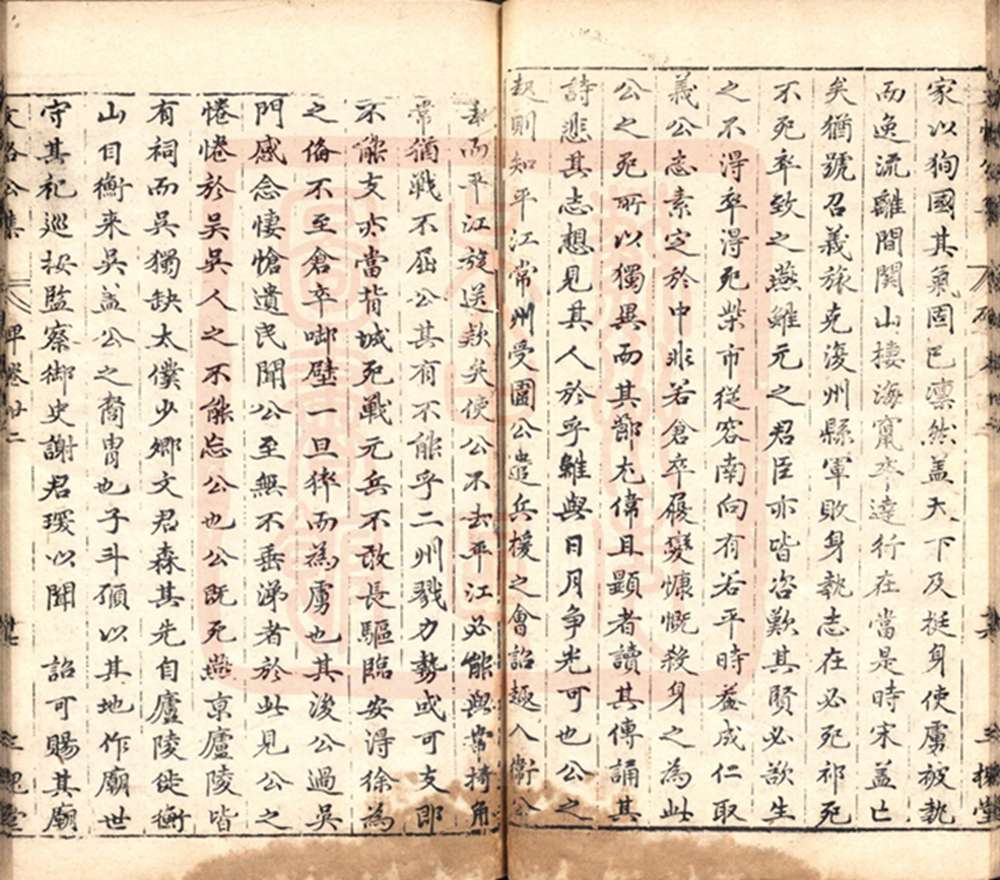 家以狥國其氣固已凛然盖天下及挺身使虜被執
而逸流離間関山棲海竄卒達行在當是時宋盖亡
矣猶號召義旅克復州縣軍敗身執志在必死祁死
不死卒致之燕雖元之君臣亦皆咨歎其賢必欲生
之不得卒得死柴市從容南向有若平時葢成仁取
義公志素定於中非若倉卒履變慷慨殺身之為此
公之死所以獨異而其節尤偉且顯者讀其傳誦其
詩悲其志想見其人於乎雖與日月争光可也公之
起則知平江常州受圍公遣兵援之會詔趣入衛公
去而平江旋送欵矣使公不去平江必能與常掎角
常猶戰不屈公其有不能乎二州戮力勢或可支即
不能支亦當背城死戰元兵不敢長驅臨安得徐為
之俻不至倉卒啣璧一旦猝而為虜也其後公過吳
門感念悽愴遺民聞公至無不垂涕者於此見公之
惓惓於吳吳人之不能忘公也公既死燕京廬陵皆
有祠而吳獨缺太僕少卿文君森其先自廬陵徙衡
山目衡来吳盖公之裔胄也子斗頋以其地作廟世
守其祀巡按監察御史謝君琛以聞 詔可賜其廟
文恪公集 碑卷廿二 三槐堂